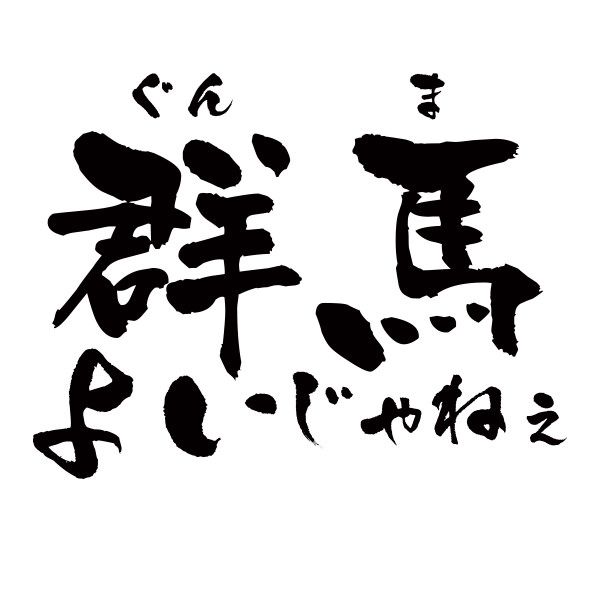 ぐんま
群馬
よいじゃねぇ